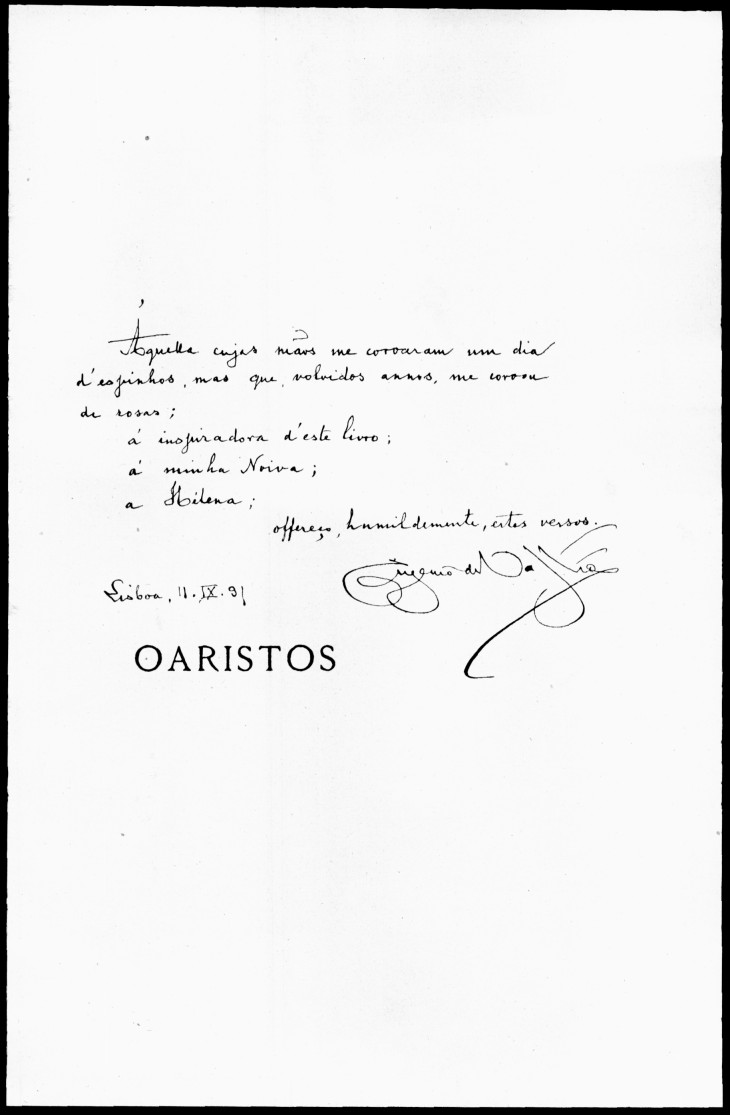 Áquella cujas mãos me corôaram um dia
d'espinhos, mas que, volvidos annos, me corôou
de rosas;
á inspiradora d'este livro;
á minha Noiva;
a Hélena;
offereço, humildemente, estes versos.
Eugenio de Castro
Lisboa, 11.IX.91
OARISTOS